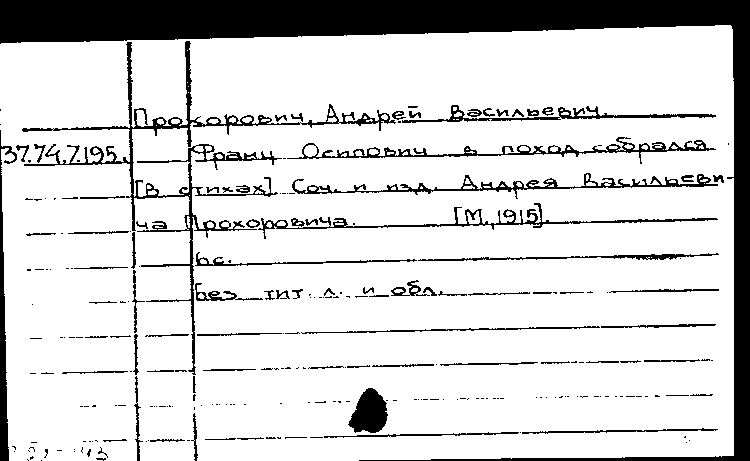 Прохорович, Андрей Васильевич.
37.74.7.195. Франц Осипович в поход собрался
[В стихах]. Соч. и изд. Андрея Васильеви-
ча Прохоровича. [М., 1915].
6 с.
Без тит. л. и обл.